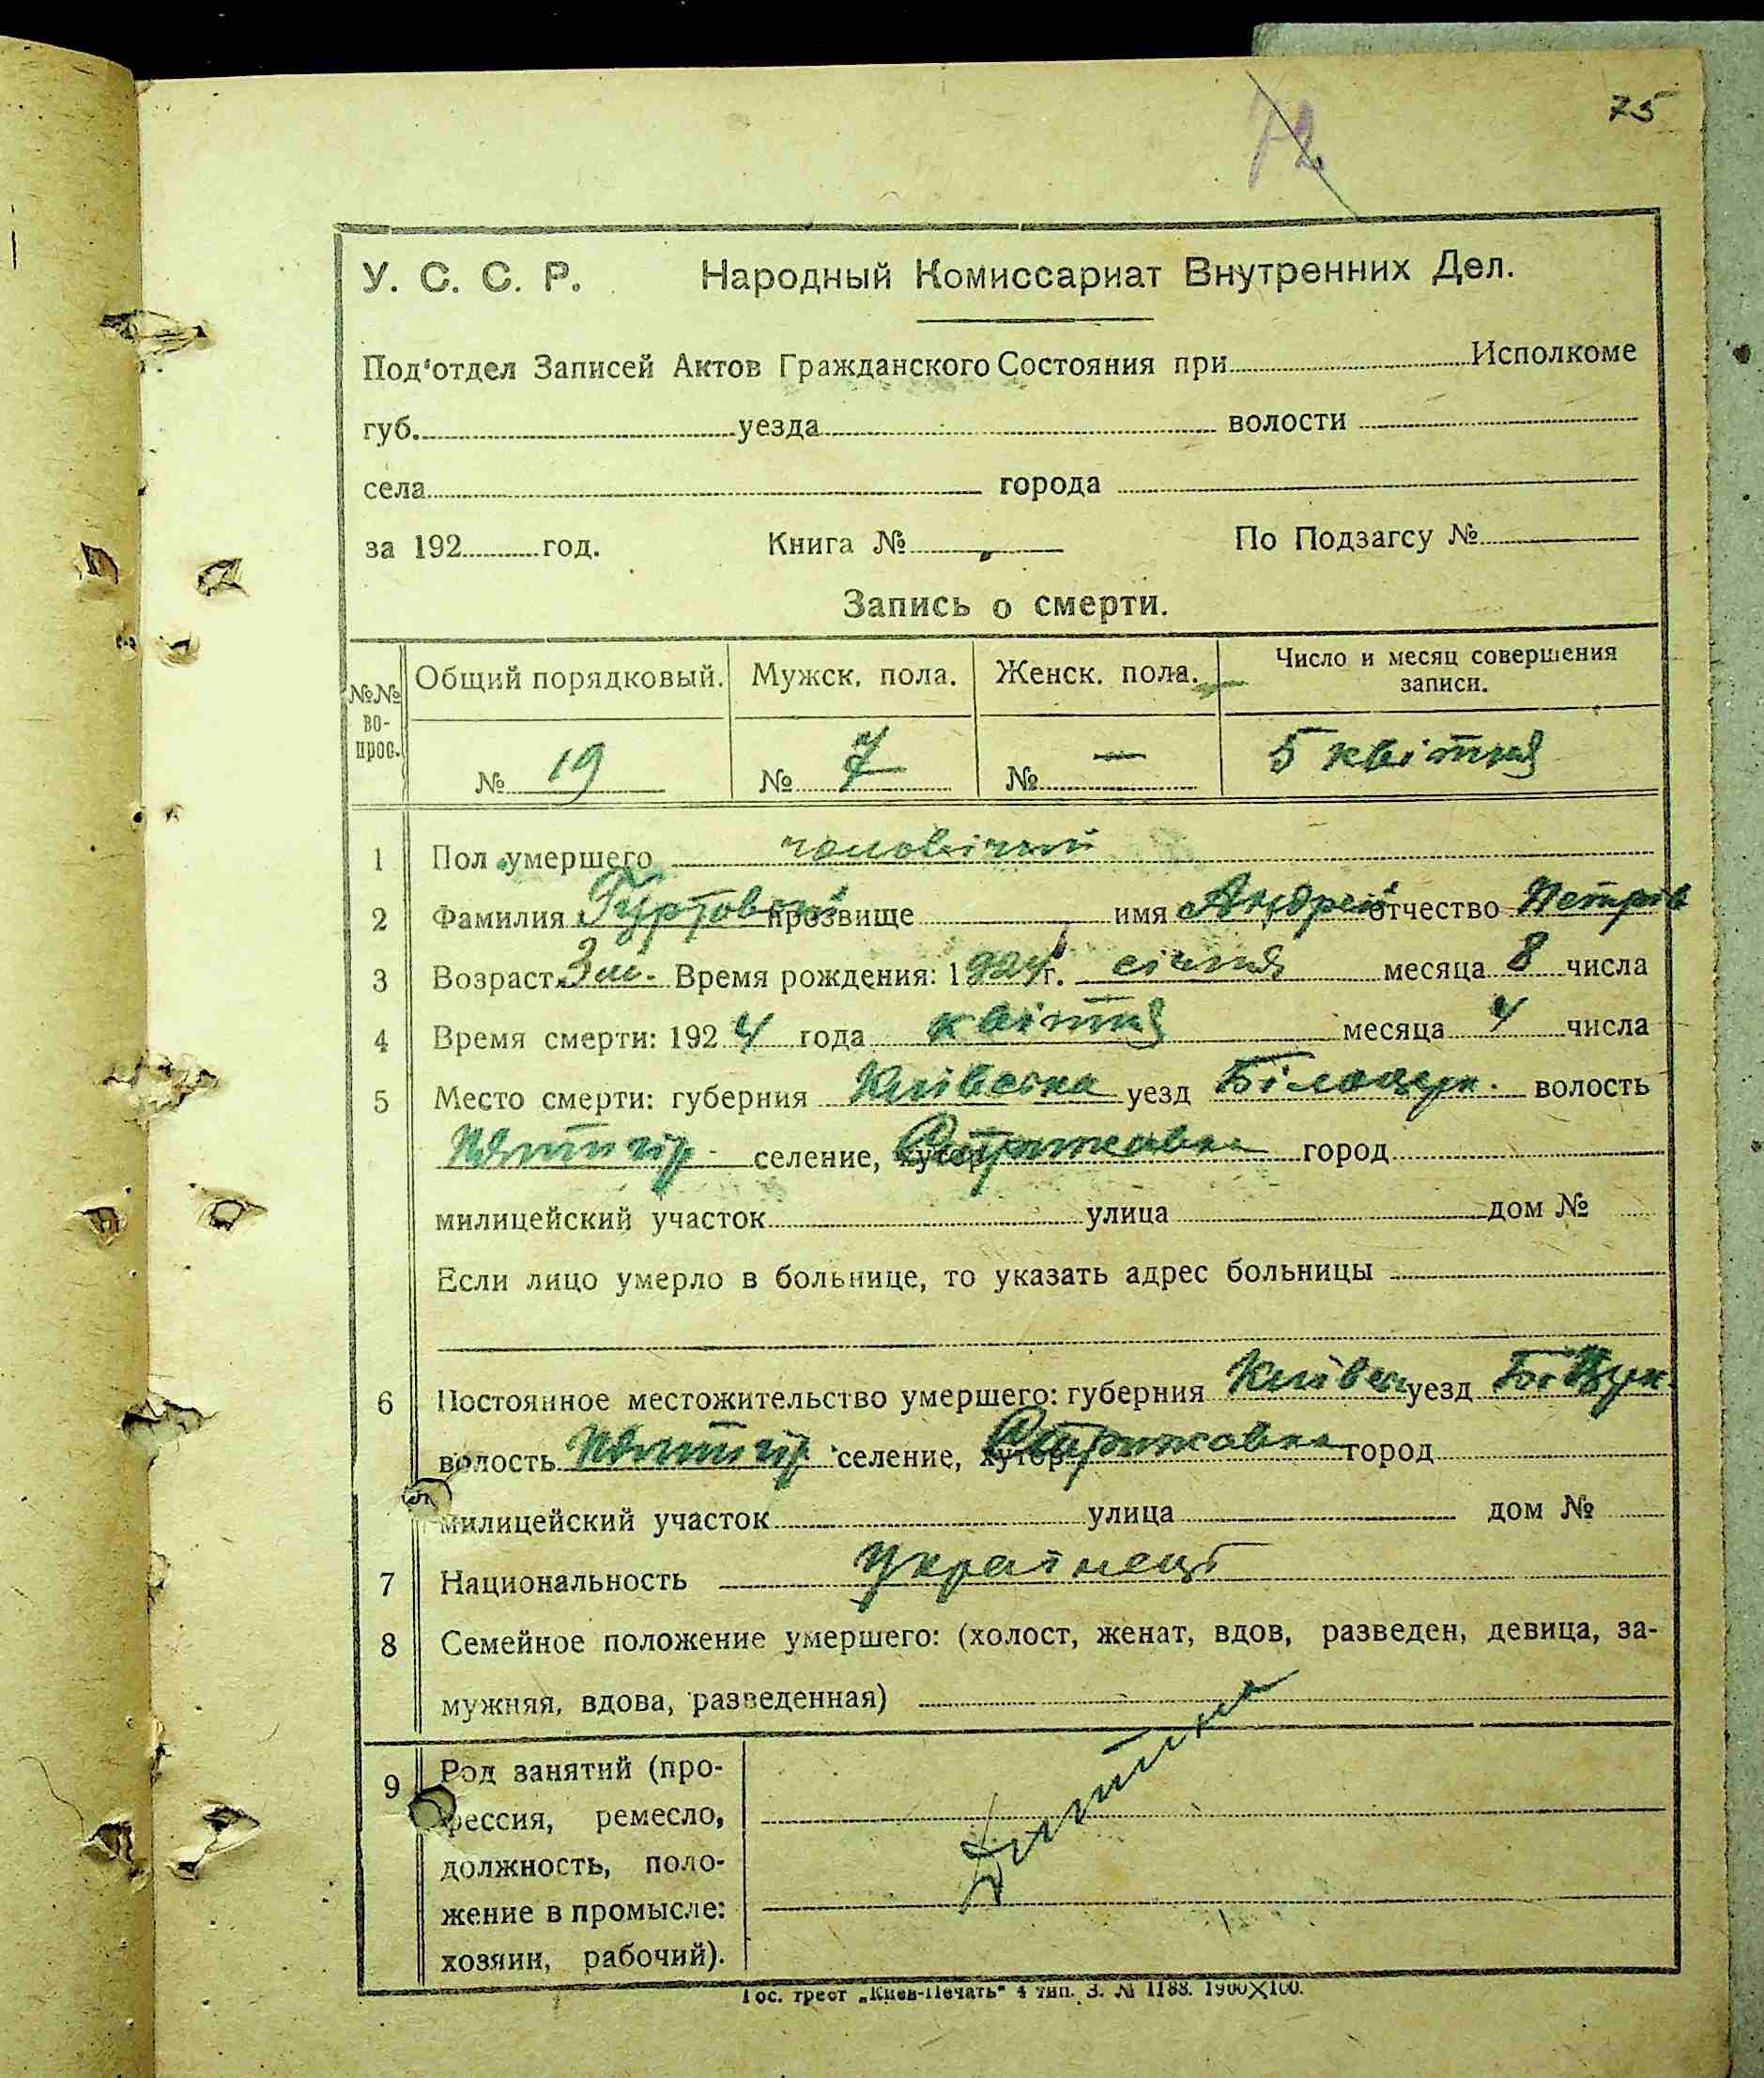 75
72
У. С. С. Р. Народный Комиссариат Внутренних Дел.
Под'отдел Записей Актов Гражданского Состояния при Исполкоме
губ. уезда волости
села города
за 192 год. Книга № По Подзагсу №
Запись о смерти.
№№ во-прос. Общий порядковый. Мужск. пола. Женск. пола. Число и месяц совершения записи.
№ 19 № 7 № — 5 квітня
1 Пол умершего чоловічий
2 Фамилия Гуртовий прозвище имя Андрей отчество Петрів
3 Возраст 3 м. Время рождения: 1924 г. січня месяца 8 числа
4 Время смерти: 1924 года квітня месяца 4 числа
5 Место смерти: губерния Київська уезд Білоцерк. волость
Пятигір селение, хутор Стрижавка город
милицейский участок улица дом №
Если лицо умерло в больнице, то указать адрес больницы
6 Постоянное местожительство умершего: губерния Київськ уезд Б-Церк
волость Пятигір селение, хутор Стрижавка город
милицейский участок улица дом №
7 Национальность Українець
8 Семейное положение умершего: (холост, женат, вдов, разведен, девица, за-
мужняя, вдова, разведенная)
9 Род занятий (про-
фессия, ремесло,
должность, поло-
жение в промысле:
хозяин, рабочий).
Дитина
Гос. трест „Киев-Печать" 4 тип. З. № 1188. 1900×100.